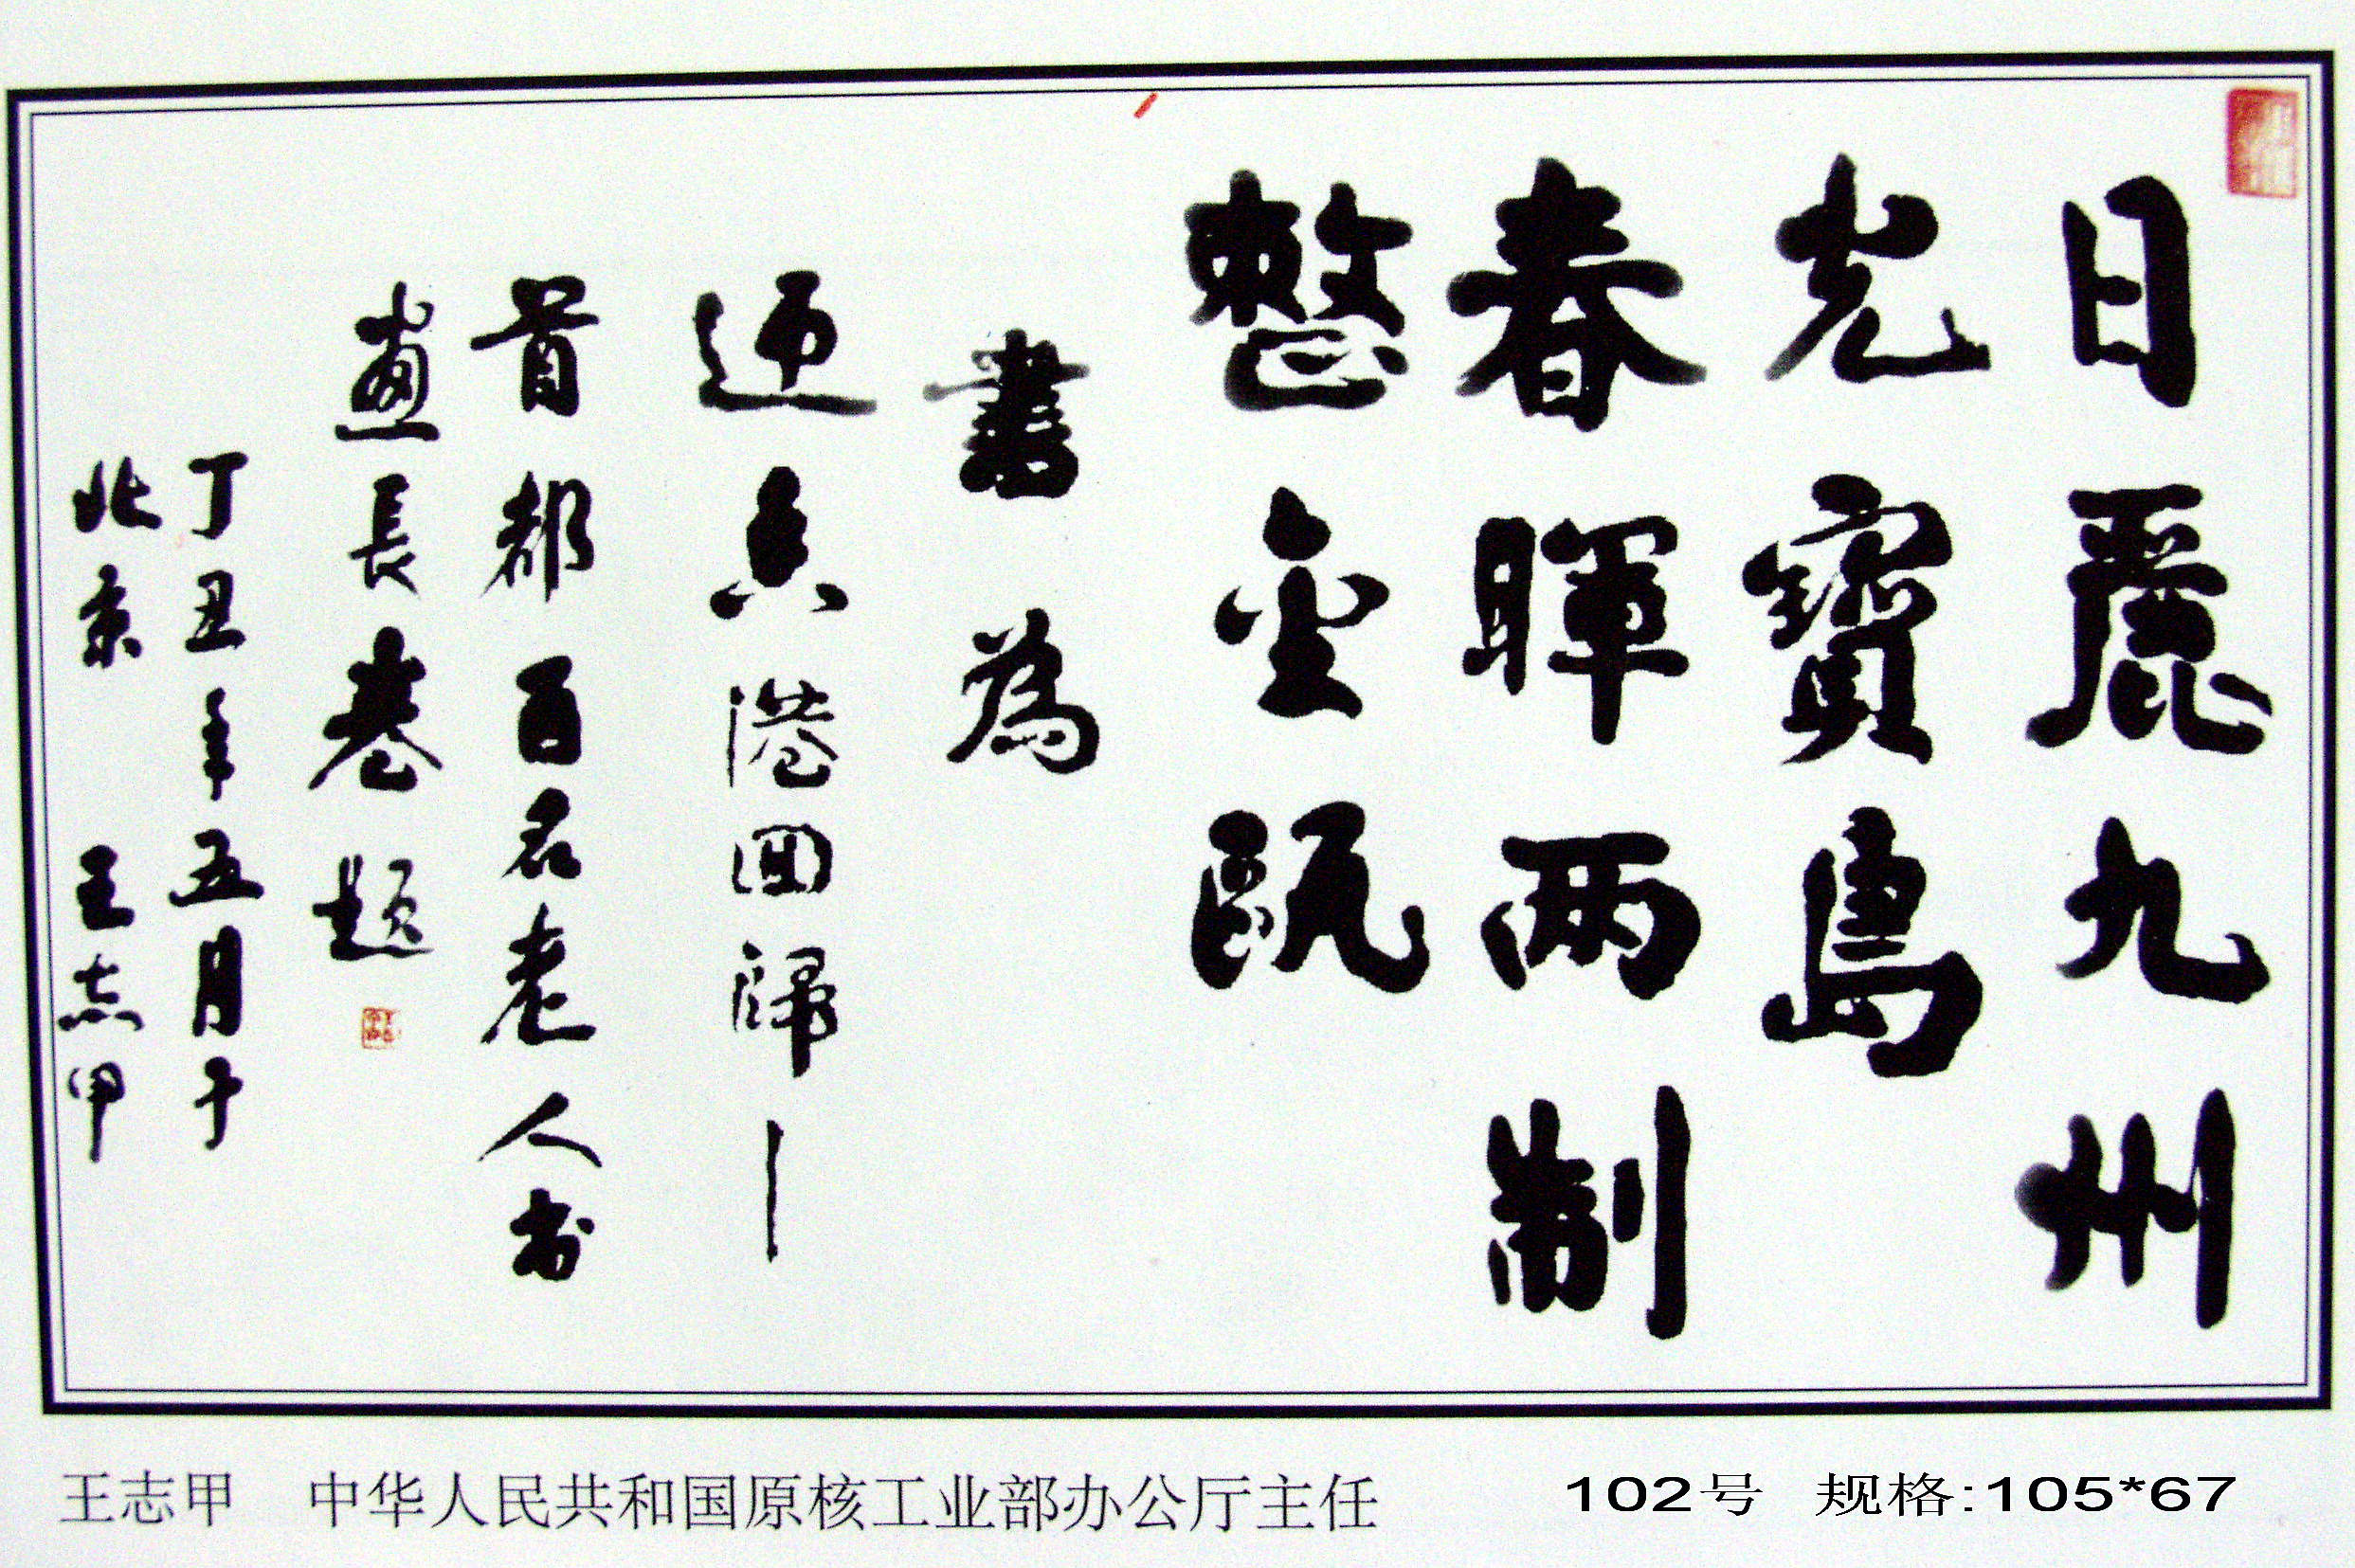 日麗九州
光寶島
春暉兩制
整金甌
書為
迎香港回歸—
首都百名老人书
畫長卷题
丁丑年五月于
北京 王志甲
王志甲 中华人民共和国原核工业部办公厅主任
102号 规格:105*67